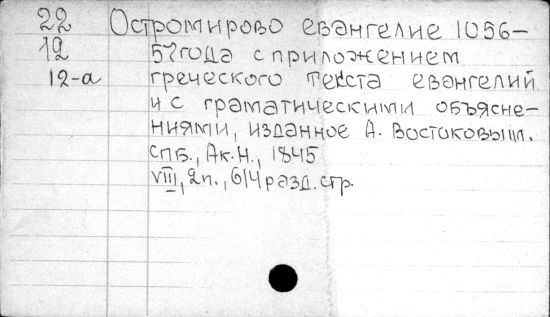 22 Остромирово евангелие 1056-
12 57 года с приложением
12-а греческого текста евангелий
и с граматическими объясне-
ниями, изданное А. Востоковым.
СПб., Ак.Н., 1845
VIII, 2п., 614 разд. стр.